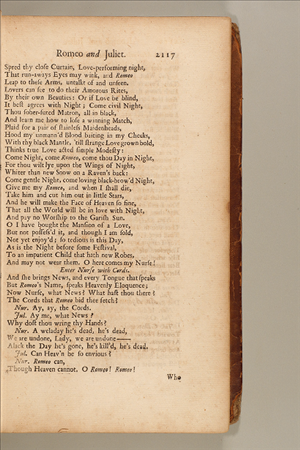 Romeo and Juliet. 2117
Spred thy close Curtain, Love-performing night,
That run-aways Eyes may wink, and Romeo
Leap to these Arms, untalkt of and unseen.
Lovers can see to do their Amorous Rites,
By their own Beauties: Or if Love be blind,
It best agrees with Night; Come civil Night,
Thou sober-suted Matron, all in black,
And learn me how to lose a winning Match,
Plaid for a pair of stainless Maidenheads,
Hood my unmann'd Blood baiting in my Cheeks,
With thy black Mantle, 'till strange Love grown bold,
Thinks true Love acted simple Modesty:
Come Night, come Romeo, come thou Day in Night,
For thou wilt lye upon the Wings of Night,
Whiter than new Snow on a Raven's back:
Come gentle Night, come loving black-brow'd Night,
Give me my Romeo, and when I shall die,
Take him and cut him out in little Stars,
And he will make the Face of Heaven so fine,
That all the World will be in love with Night,
And pay no Worship to the Garish Sun.
O I have bought the Mansion of a Love,
But not possess'd it, and though I am sold,
Not yet enjoy'd: so tedious is this Day,
As is the Night before some Festival,
To an impatient Child that hath new Robes.
And may not wear them. O here comes my Nurse!
Enter Nurse with Cords.
And she brings News, and every Tongue that speaks
But Romeo's Name, speaks Heavenly Eloquence;
Now Nurse, what News? What hast thou there?
The Cords that Romeo bid thee fetch?
Nur. Ay, ay, the Cords.
Jul. Ay me, what News?
Why dost thou wring thy Hands?
Nur. A weladay he's dead, he's dead,
We are undone, Lady, we are undone——
Alack the Day he's gone, he's kill'd, he's dead.
Jul. Can Heav'n be so envious?
Nur. Romeo can,
Though Heaven cannot. O Romeo! Romeo!
Who